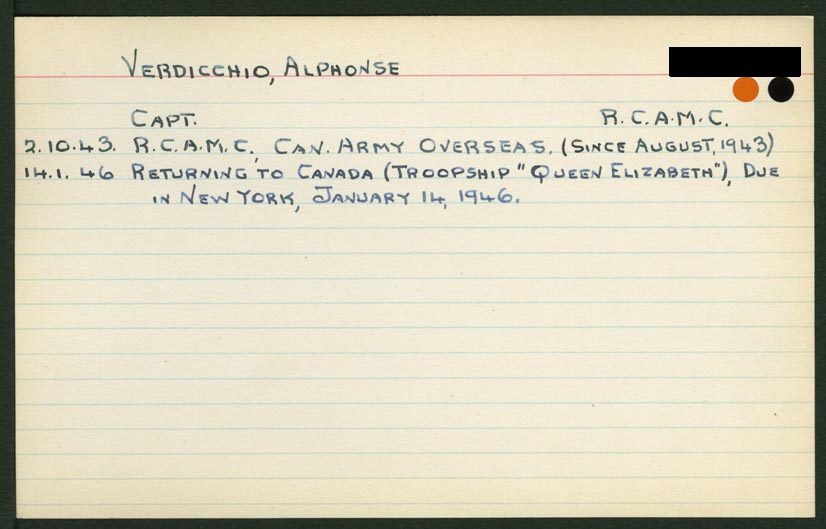 VERDICCHIO, ALPHONSE
CAPT. R.C.A.M.C.
2.10.43. R.C.A.M.C., CAN. ARMY OVERSEAS. (SINCE AUGUST, 1943)
14.1.46 RETURNING TO CANADA (TROOPSHIP "QUEEN ELIZABETH"), DUE
IN NEW YORK, JANUARY 14, 1946.